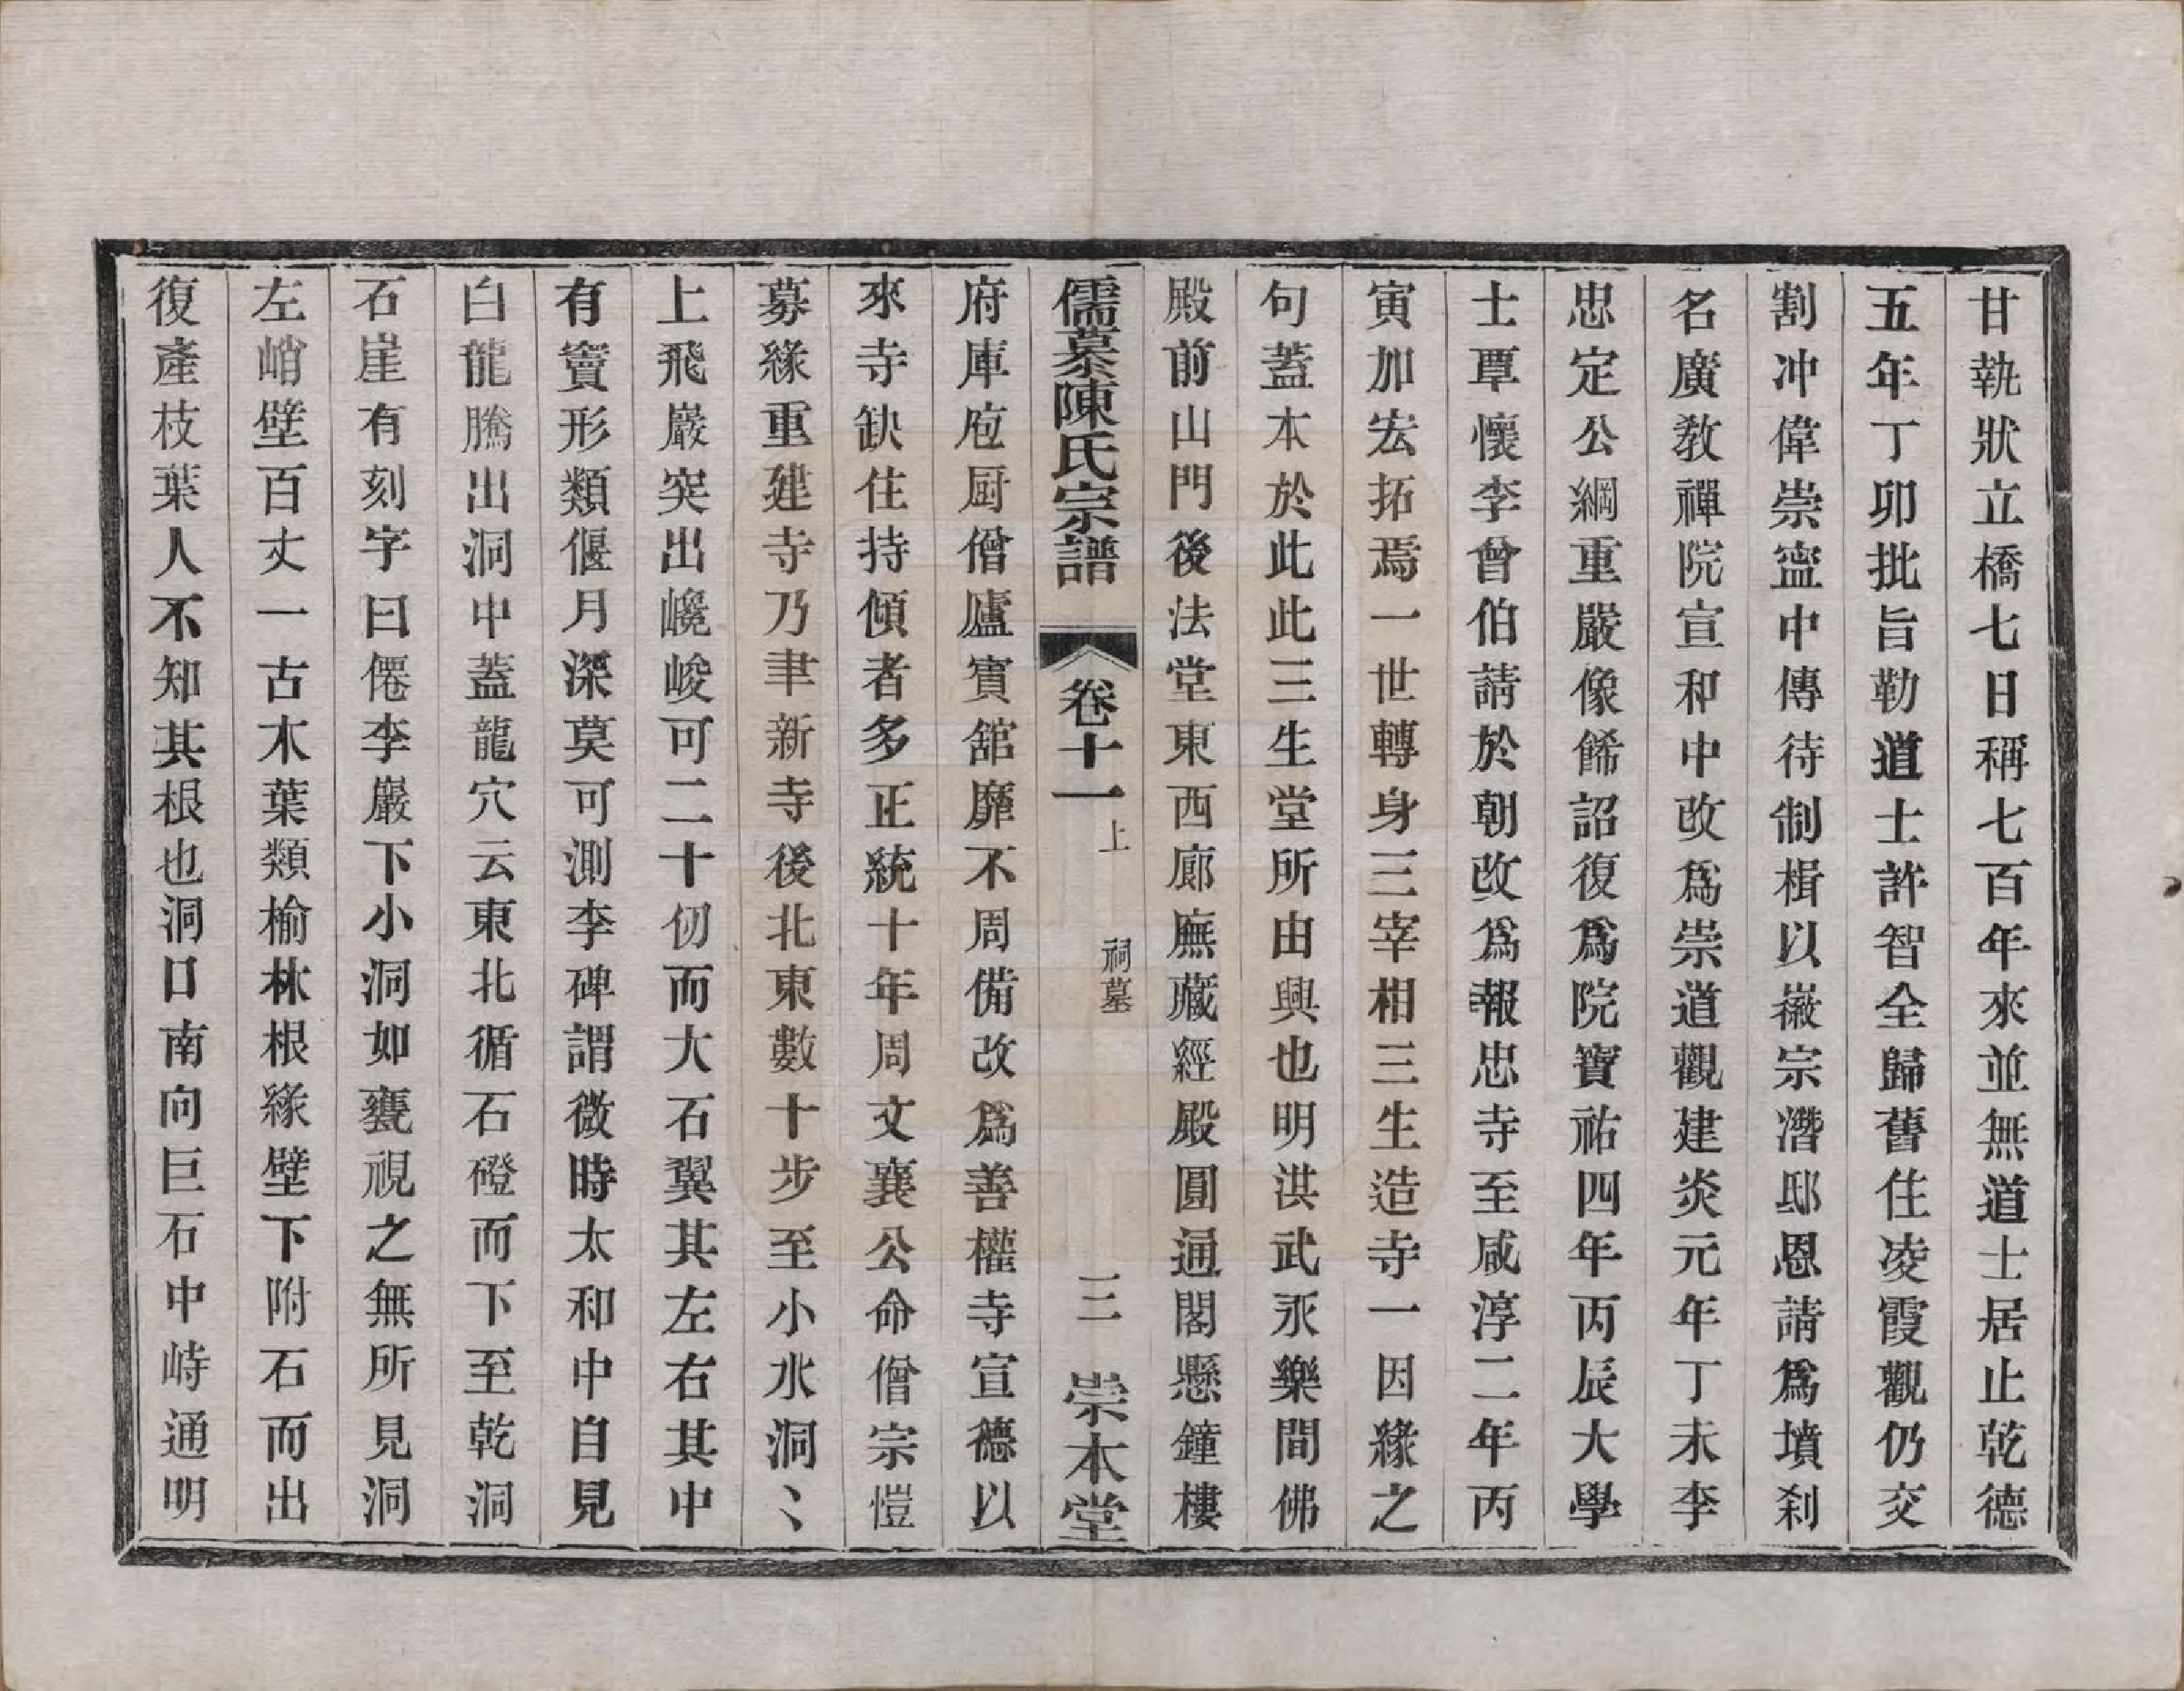 甘執狀立橋七日稱七百年來並無道士居止乾德
五年丁卯批旨勒道士許智全歸舊住凌霞觀仍交
割冲偉崇寍中傳待制楫以徽宗潛邸恩請爲墳刹
名廣敎禪院宣和中改爲崇道觀建炎元年丁未李
忠定公綱重嚴像餙詔復爲院寶祐四年丙辰大學
士覃懷李曾伯請於朝改爲報忠寺至咸淳二年丙
寅加宏拓焉一世轉身三宰相三生造寺一因緣之
句蓋本於此此三生堂所由興也明洪武永樂間佛
殿前山門後法堂東西廊廡藏經殿圓通閣懸鐘樓
儒慕陳氏宗譜 卷十一上 祠墓 三 崇本堂
府庫庖厨僧廬賓舘靡不周備改爲善權寺宣德以
來寺缺住持傾者多正統十年周文襄公命僧宗愷
募緣重建寺乃聿新寺後北東數十步至小水洞〻
上飛巖突出巉峻可二十仞而大石翼其左右其中
有竇形類偃月深莫可測李碑謂微時太和中自見
白龍騰出洞中蓋龍穴云東北循石磴而下至乾洞
石崖有刻字曰僊李巖下小洞如甕視之無所見洞
左峭壁百丈一古木葉類榆林根緣壁下附石而出
復產枝葉人不知其根也洞口南向巨石中峙通明